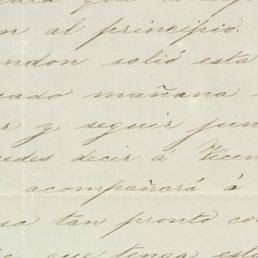 n al principio.
ndon salió esta
cado mañana
r y seguir jun
edes decir á Vicen
acompañará á
sa tan pronto co
que tenga esta